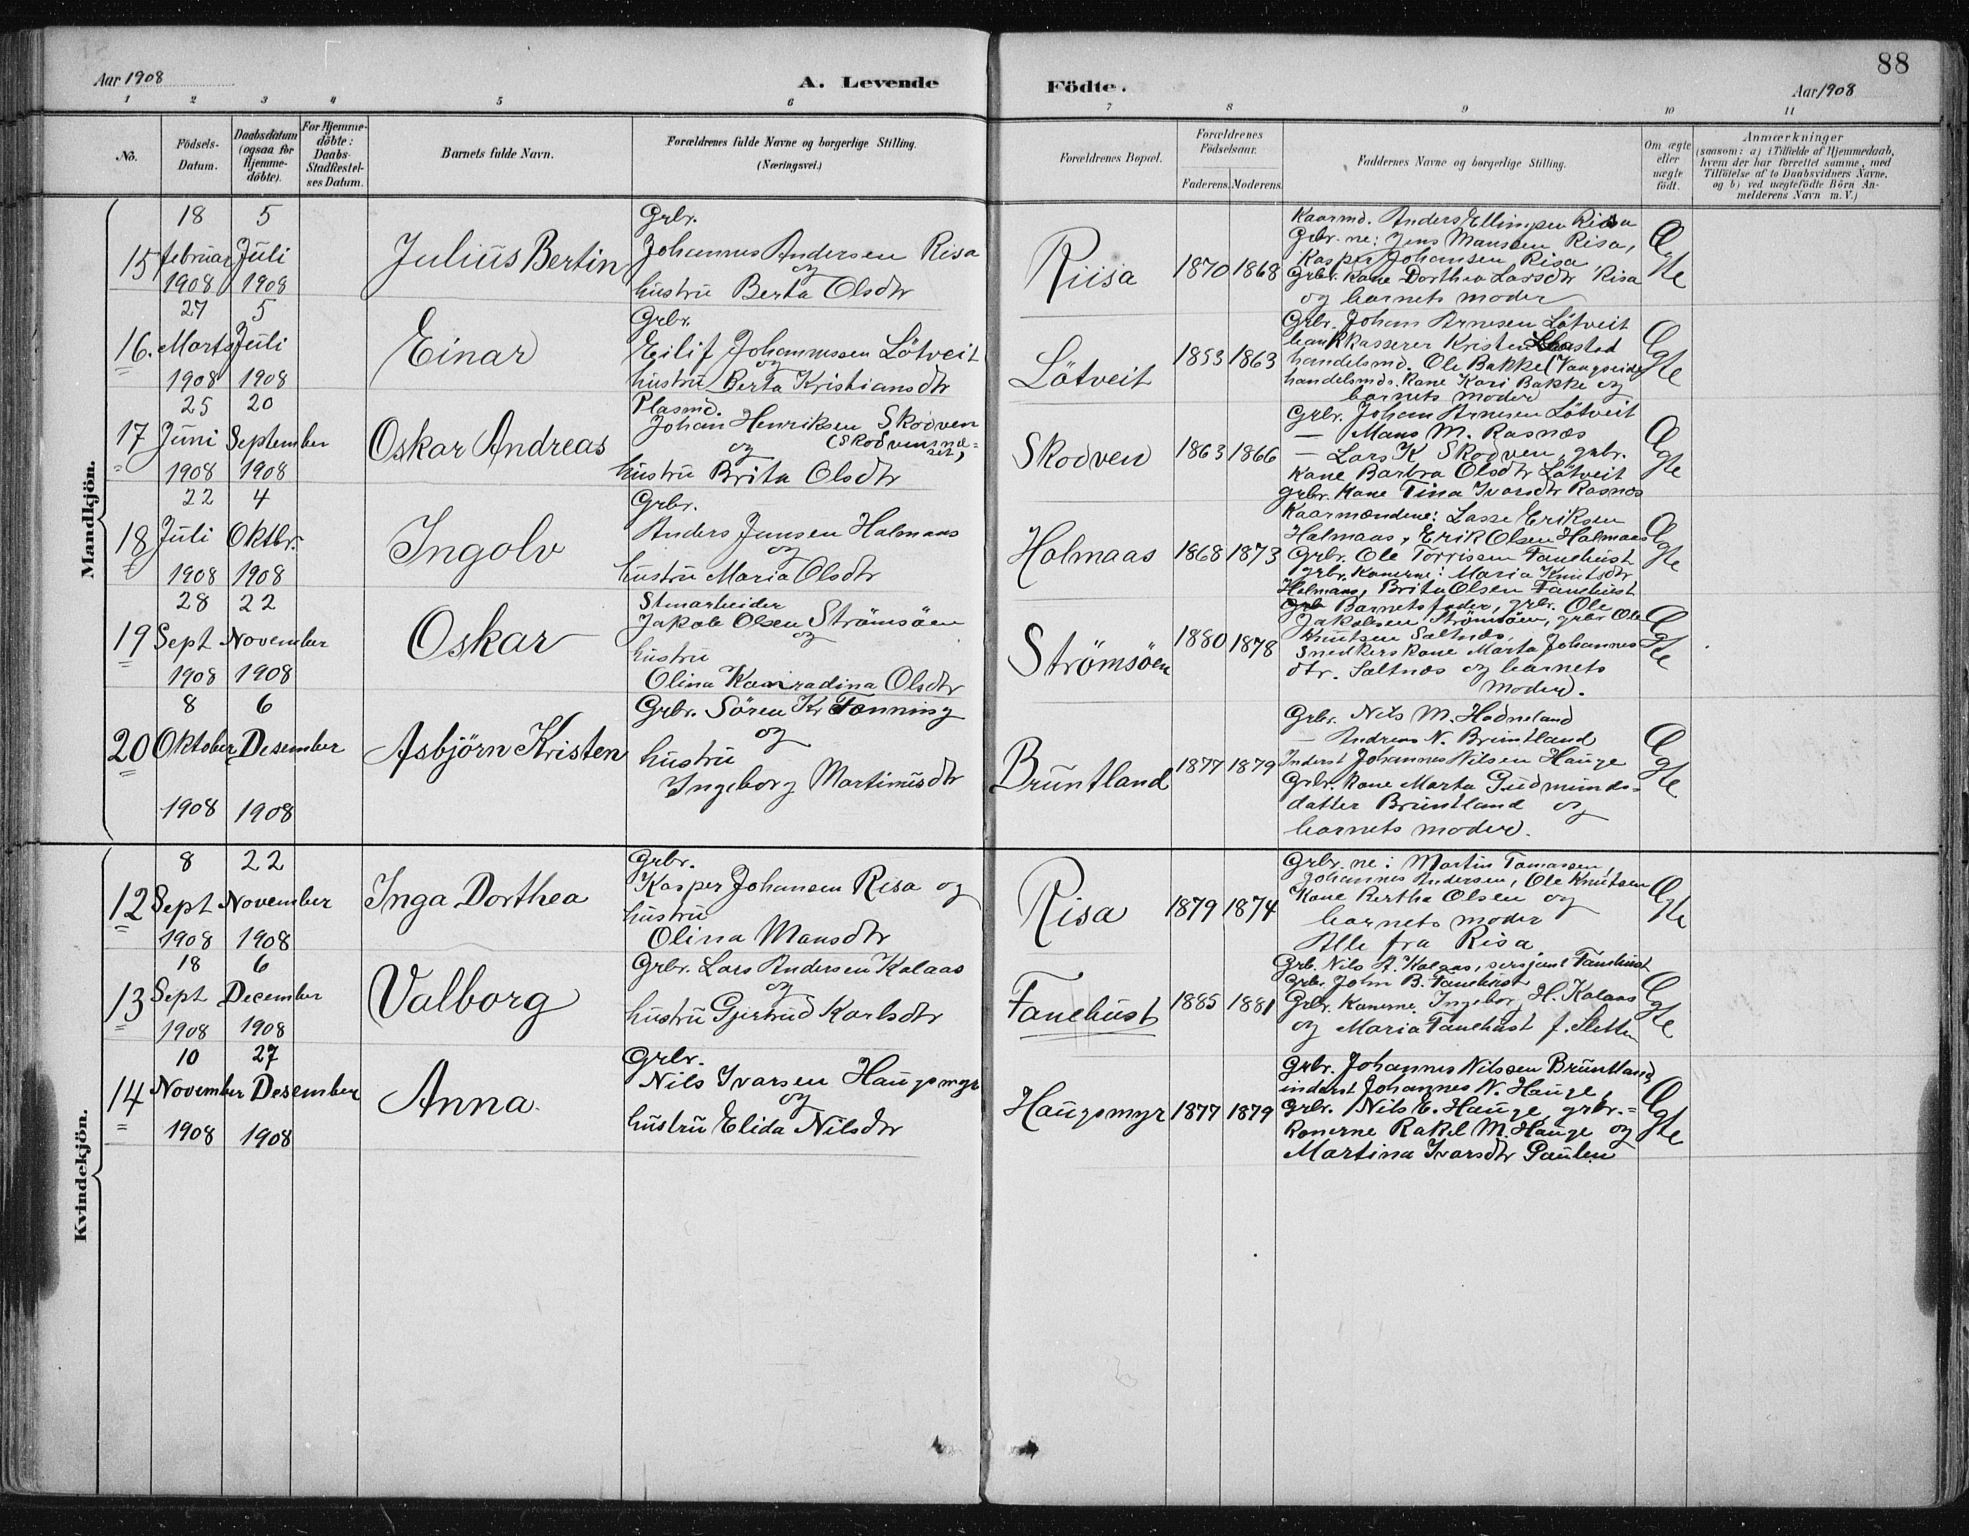 88
Aar 1908
A. Levende
Födte.
Aar 1908
1 2 3 4 5 6 7 8 9 10 11
No.
Födsels-
Datum.
Daabsdatum
(ogsaa for
Hjemme-
döbte).
For Hjemme-
döbte:
Daabs-
Stadfæstel-
ses Datum.
Barnets fulde Navn.
Forældrenes fulde Navne og borgerlige Stilling.
(Næringsvei.)
Forældrenes Bopæl.
Forældrenes
Födselsaar.
Faderens. Moderens.
Faddernes Navne og borgerlige Stilling.
Om ægte
eller
uægte
födt.
Anmærkninger
(saasom: a) i Tilfælde af Hjemmedaab,
hvem der har forrettet samme, med
Tilföielse af to Daabsvidners Navne,
og b) ved uægtefödte Börn An-
melderens Navn m. V.)
Mandkjön.
15
18
februar
1908
5
Juli
1908
Julius Bertin
Grbr.
Johannes Andersen Risa
og
hustru Berta Olsdtr
Riisa
1870 1868
Kaarmd. Anders Ellingsen Risa
Grbr.ne: Jens Mansen Risa,
Kasper Johansen Risa
Grbr. kone Dorthea Larsdtr Risa
og barnets moder
Ægte
16.
27
Marts
1908
5
Juli
1908
Einar
Grbr.
Eilif Johannessen Lötveit
og
hustru Berta Kristiansdtr
Lötveit
1853 1863
Grbr. Johan Arnesen Lötveit
bankkasserer Kristen
handelsmd. Ole Bakke (Vangseide
handelsmds. kone Kari Bakke og
barnets moder
Ægte
17
25
Juni
1908
20
September
1908
Oskar Andreas
Plasmd.
Johan Henriksen Skodven
og (Skodvensnæ-
set)
hustru Brita Olsdtr
Skodven
1863 1866
Grbr. Johan Arnesen Lötveit
— Mans M. Rasnæs
— Lars K Skodven, grbr.
kone Barbra Olsdtr Lötveit
grbr. kone Tina Ivarsdtr Rasnæs
Ægte
18
22
Juli
1908
4
Oktbr.
1908
Ingolv
Grbr.
Anders Jensen Halmaas
og
hustru Maria Olsdtr
Holmaas
1868 1873
Kaarmændene: Lasse Eriksen
Halmaas, Erik Olsen Halmaas
Grbr. Ole Torrisen Fanehust
grbr. konerne: Maria Knutsdtr
Holmaas, Brita Olsen Fanehust
Ægte
19
28
Sept
1908
22
November
1908
Oskar
Stenarbeider
Jakob Olsen Strömsöen
og
hustru
Olina Konradina Olsdtr
Strømsöen
1880 1878
Barnets fader, grbr. Ole
Jakobsen Strömsöen, grbr Ole
Knutsen Saltnæs,
Snedkers kone Marta Johannes
dtr. Saltnæs og barnets
moder.
Ægte
20
8
Oktober
1908
6
Desember
1908
Asbjörn Kristen
Grbr. Sören Kr Fonning
og
hustru
Ingeborg Martinusdtr
Bruntland
1877 1879
Grbr. Nils M. Hodneland
— Andreas N. Bruntland
Inderst Johannes Nilsen Hauge
Grbr. kone Marta Gudmunds-
datter Bruntland og
barnets moder.
Ægte
Kvindekjön.
12
8
Sept
1908
22
November
1908
Inga Dorthea
Grbr.
Kasper Johansen Risa og
hustru
Olina Mansdtr
Risa
1879 1874
Grbr.ne: Martin Tomassen,
Johannes Andersen, Ole Knutsen
Kone Bertha Olsen og
barnets moder
Alle fra Risa
Ægte
13
18
Sept
1908
6
December
1908
Valborg
Grbr. Lars Andersen Kalaas
og
hustru Gjertrud Karlsdtr
Fanehust
1885 1881
Grb. Nils A. Kalaas, sersjant Fanehust
Grbr. John B. Fanehust
Grbr. konerne Ingeborg H. Kalaas
og Maria Fanehust f. Sletten
Ægte
14
10
November
1908
27
Desember
1908
Anna.
Grbr.
Nils Ivarsen Haugsmyr
og
hustru Elida Nilsdtr
Haugsmyr
1877 1879
Grbr. Johannes Nilsen Bruntland,
inderst Johannes N. Hauge,
Grbr. Nils E. Hauge, grbr.-
konerne Rakel M. Hauge og
Martina Ivarsdtr Paulen
Ægte